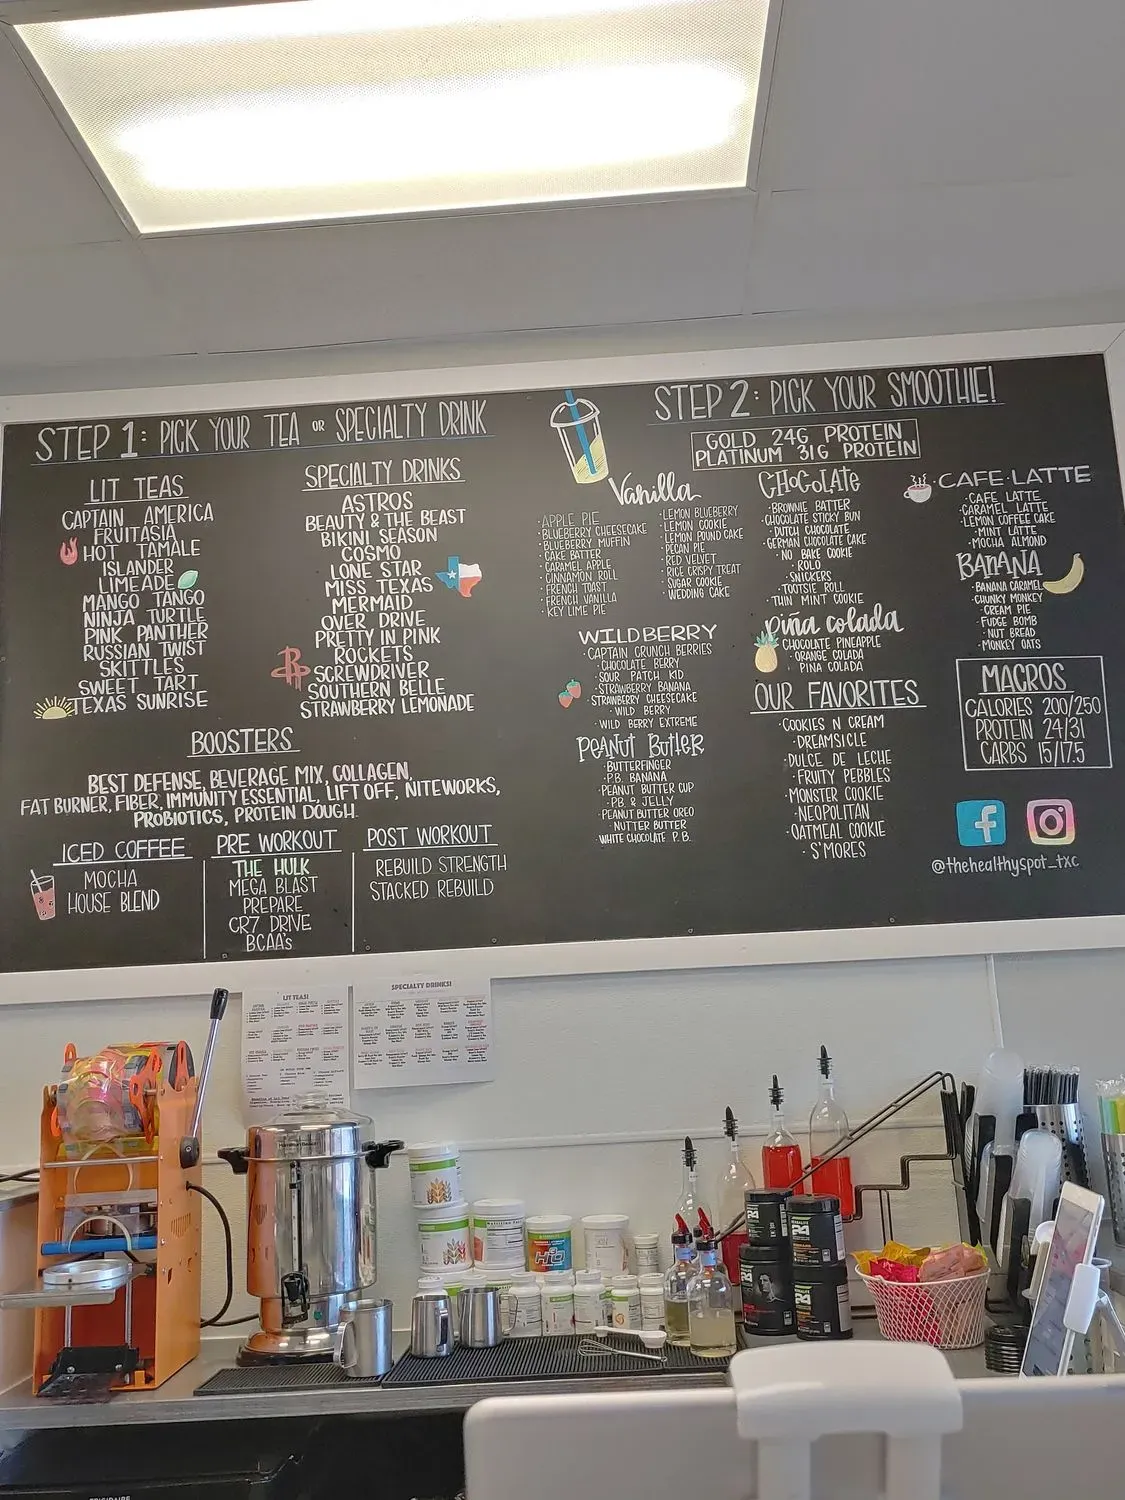 STEP 1: PICK YOUR TEA OR SPECIALTY DRINK
LIT TEAS
CAPTAIN AMERICA
FRUITASIA
HOT TAMALE
ISLANDER
LIMEADE
MANGO TANGO
NINJA TURTLE
PINK PANTHER
RUSSIAN TWIST
SKITTLES
SWEET TART
TEXAS SUNRISE
SPECIALTY DRINKS
ASTROS
BEAUTY & THE BEAST
BIKINI SEASON
COSMO
LONE STAR
MISS TEXAS
MERMAID
OVER DRIVE
PRETTY IN PINK
ROCKETS
SCREWDRIVER
SOUTHERN BELLE
STRAWBERRY LEMONADE
BOOSTERS
BEST DEFENSE, BEVERAGE MIX, COLLAGEN,
FAT BURNER, FIBER, IMMUNITY ESSENTIAL, LIFT OFF, NITEWORKS,
PROBIOTICS, PROTEIN DOUGH.
ICED COFFEE
MOCHA
HOUSE BLEND
PRE WORKOUT
THE HULK
MEGA BLAST
PREPARE
CR7 DRIVE
BCAA's
POST WORKOUT
REBUILD STRENGTH
STACKED REBUILD
STEP 2: PICK YOUR SMOOTHIE!
GOLD 24G PROTEIN
PLATINUM 31G PROTEIN
Vanilla
·APPLE PIE
·BLUEBERRY CHEESECAKE
·BLUEBERRY MUFFIN
·CAKE BATTER
·CARAMEL APPLE
·CINNAMON ROLL
·FRENCH TOAST
·FRENCH VANILLA
·KEY LIME PIE
·LEMON BLUEBERRY
·LEMON COOKIE
·LEMON POUND CAKE
·PECAN PIE
·RED VELVET
·RICE CRISPY TREAT
·SUGAR COOKIE
·WEDDING CAKE
WILDBERRY
·CAPTAIN CRUNCH BERRIES
·CHOCOLATE BERRY
·SOUR PATCH KID
·STRAWBERRY BANANA
·STRAWBERRY CHEESECAKE
·WILD BERRY
·WILD BERRY EXTREME
PEANUT BUTTER
·BUTTERFINGER
·P.B. BANANA
·PEANUT BUTTER CUP
·P.B. & JELLY
·PEANUT BUTTER OREO
·NUTTER BUTTER
·WHITE CHOCOLATE P.B.
CHOCOLATE
·BROWNIE BATTER
·CHOCOLATE STICKY BUN
·DUTCH CHOCOLATE
·GERMAN CHOCOLATE CAKE
·NO BAKE COOKIE
·ROLO
·SNICKERS
·TOOTSIE ROLL
·THIN MINT COOKIE
piña colada
·CHOCOLATE PINEAPPLE
·ORANGE COLADA
·PINA COLADA
OUR FAVORITES
·COOKIES N CREAM
·DREAMSICLE
·DULCE DE LECHE
·FRUITY PEBBLES
·MONSTER COOKIE
·NEOPOLITAN
·OATMEAL COOKIE
·S'MORES
·CAFE·LATTE
·CAFE LATTE
·CARAMEL LATTE
·LEMON COFFEE CAKE
·MINT LATTE
·MOCHA ALMOND
BANANA
·BANANA CARAMEL
·CHUNKY MONKEY
·CREAM PIE
·FUDGE BOMB
·NUT BREAD
·MONKEY OATS
MACROS
CALORIES 200/250
PROTEIN 24/31
CARBS 15/17.5
@thehealthyspot_txc
LIT TEAS!
SPECIALTY DRINKS!
H3O
R4
FRIGIDAIRE